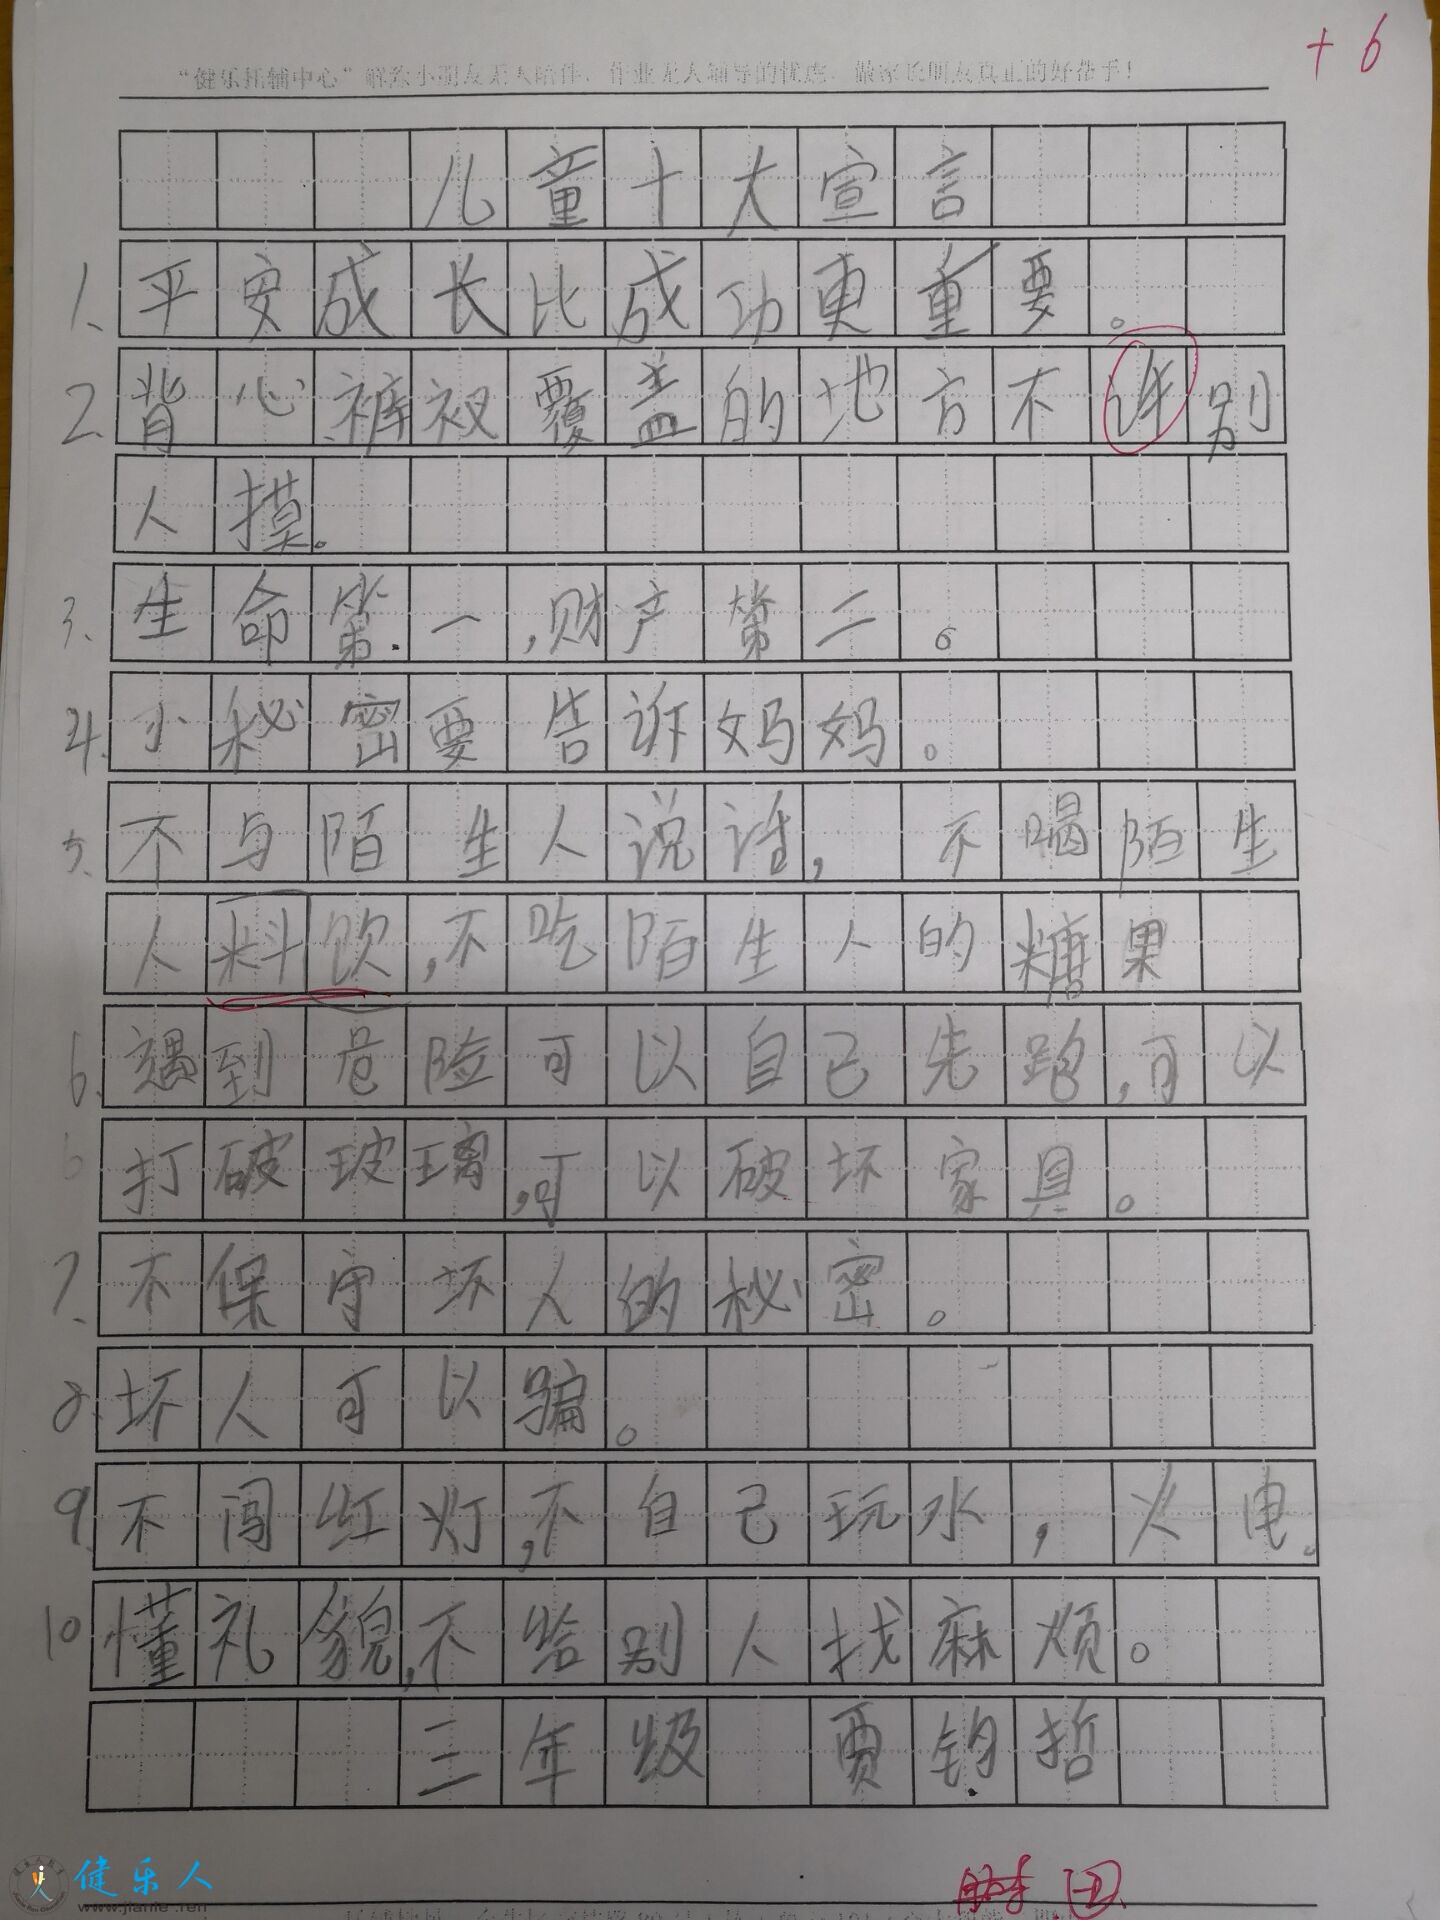 +6
儿童十大宣言
1、平安成长比成功更重要。
2、背心裤衩覆盖的地方不许别
人摸。
3、生命第一,财产第二。
4、小秘密要告诉妈妈。
5、不与陌生人说话,不喝陌生
人料饮,不吃陌生人的糖果
6、遇到危险可以自己先跑,可以
打破玻璃,可以破坏家具。
7、不保守坏人的秘密。
8、坏人可以骗。
9、不闯红灯,不自己玩水,火电。
10懂礼貌,不给别人找麻烦。
三年级 贾钧哲
健乐人
www.jianle.ren